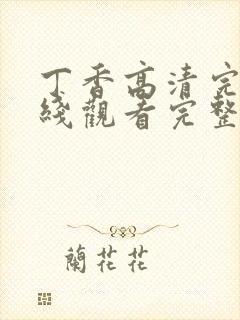 丁香高清完
綫觀看完整
蘭花花